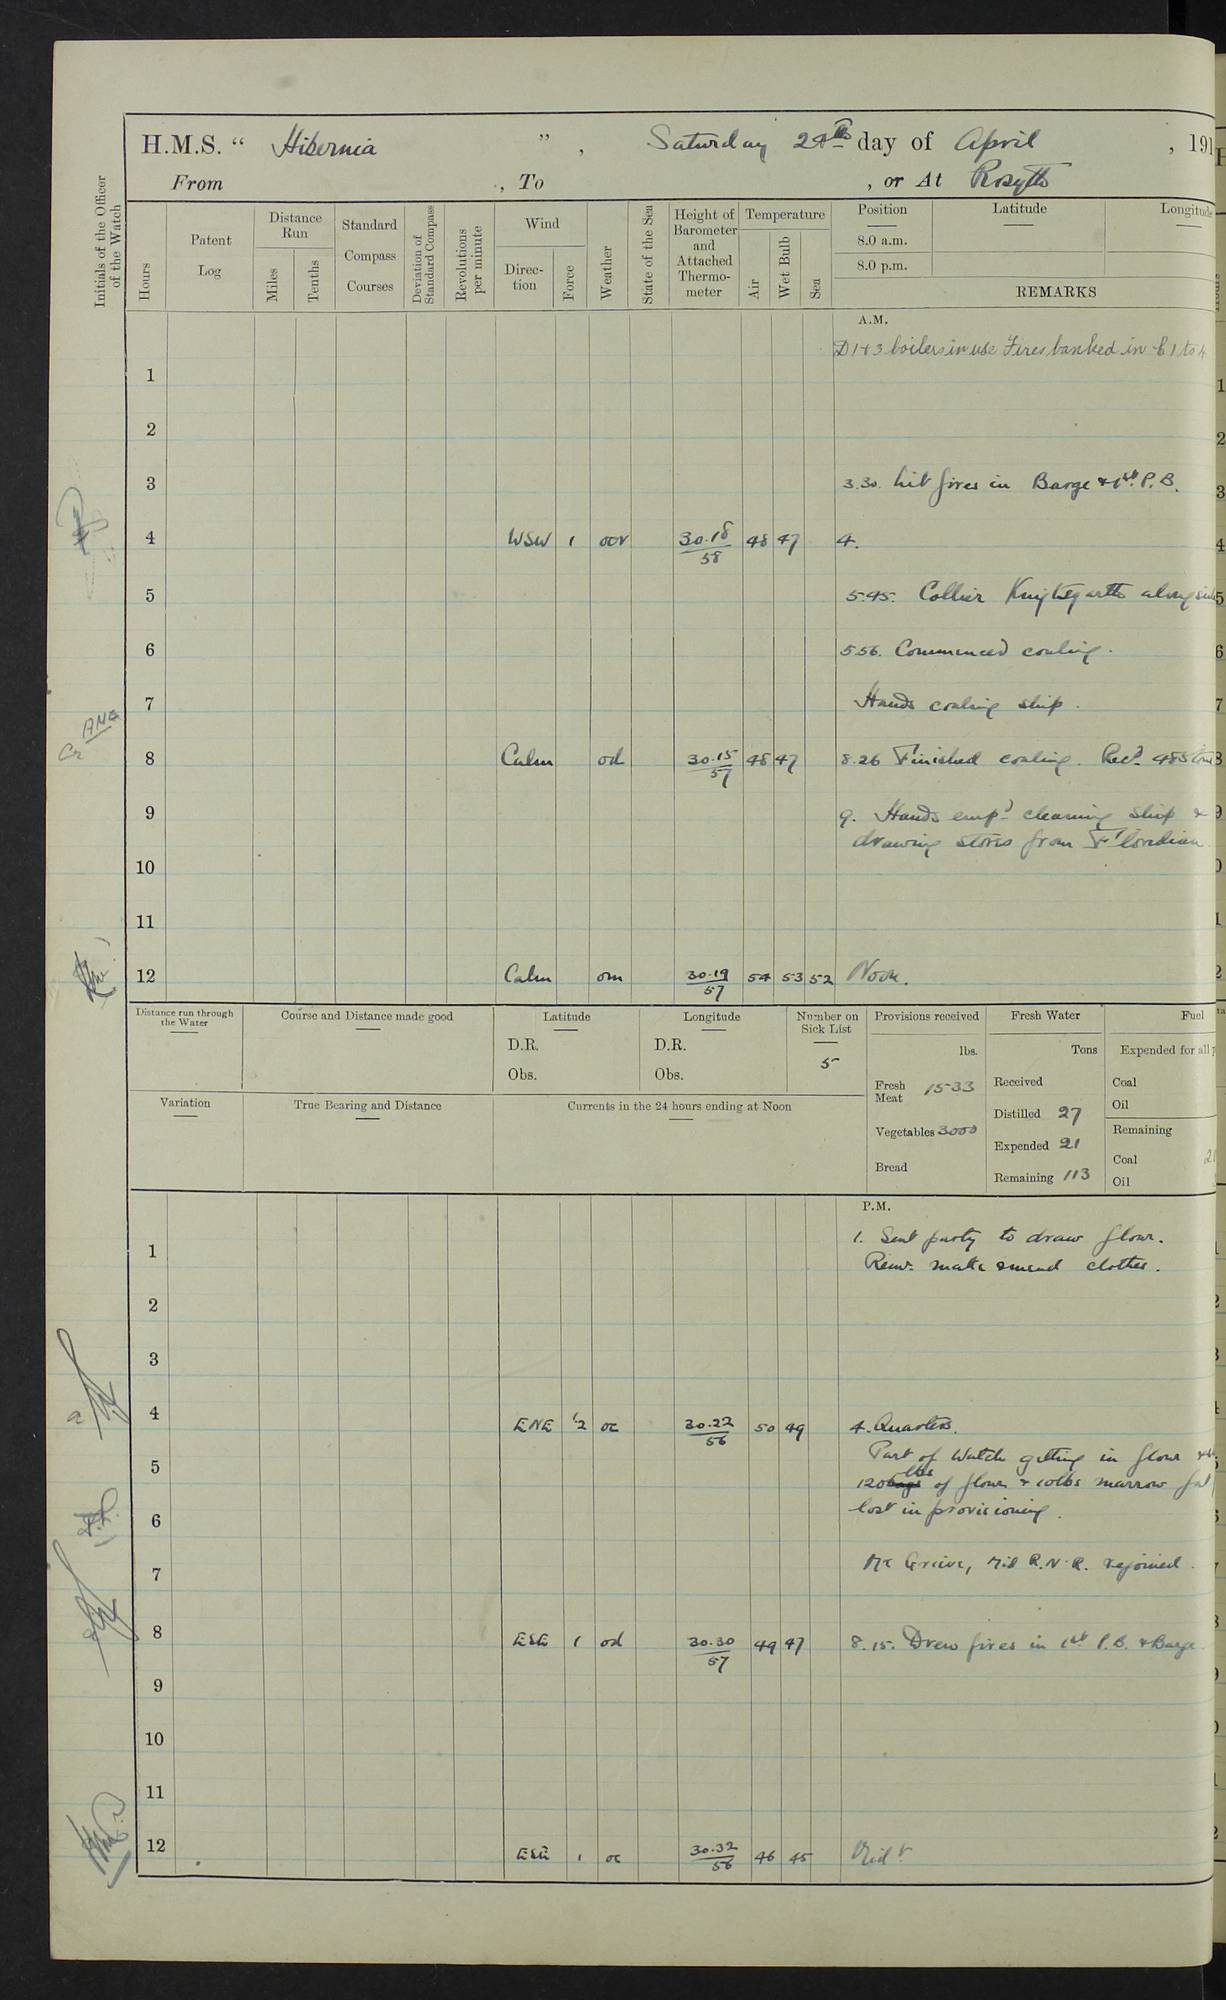 H.M.S. " Hibernia ", Saturday 24th day of April, 191
From , To , or At Rosyth
Initials of the Officer of the Watch
Hours
Patent Log
Distance Run
Miles
Tenths
Standard Compass Courses
Deviation of Standard Compass
Revolutions per minute
Wind
Direction
Force
Weather
State of the Sea
Height of Barometer and Attached Thermometer
Temperature
Air
Wet Bulb
Sea
Position Latitude Longitude
8.0 a.m.
8.0 p.m.
REMARKS
A.M.
D 1+3 boilers in use Fires banked in 1 to
1
2
3 3.30. Lit fires in Barge & 1st P.B.
4 WSW 1 oor 30.18/58 48 47 4.
5 5.45. Collier Knightsgarth alongside
6 5.56. Commenced coaling.
7 Hands coaling ship.
8 Calm od 30.15/57 48 47 8.26 Finished coaling. Recd. 485 tons
9 9. Hands empd. cleaning ship &
drawing stores from Floridian
10
11
12 Calm om 30.19/57 54 53 52 Noon.
Distance run through the Water
Course and Distance made good
Latitude
D.R.
Obs.
Longitude
D.R.
Obs.
Number on Sick List
5
Provisions received
lbs.
Fresh Meat 1533
Vegetables 3000
Bread
Fresh Water
Tons
Received
Distilled 27
Expended 21
Remaining 113
Fuel
Expended for all
Coal
Oil
Remaining
Coal
Oil
Variation
True Bearing and Distance
Currents in the 24 hours ending at Noon
P.M.
1 1. Sent party to draw flour.
Remr. make & mend clothes.
2
3
4 ENE 1.2 oc 30.22/56 50 49 4. Quarters.
Part of Watch getting in flour
5 120 lbs of flour & 10lbs marrow fat
lost in provisioning.
6
7 Mr Grieve, Mid R.N.R. rejoined.
8 ESE 1 od 30.30/57 49 47 8.15. Drew fires in 1st P.B. & Barge.
9
10
11
12 ESE 1 oc 30.32/56 46 45 Midt